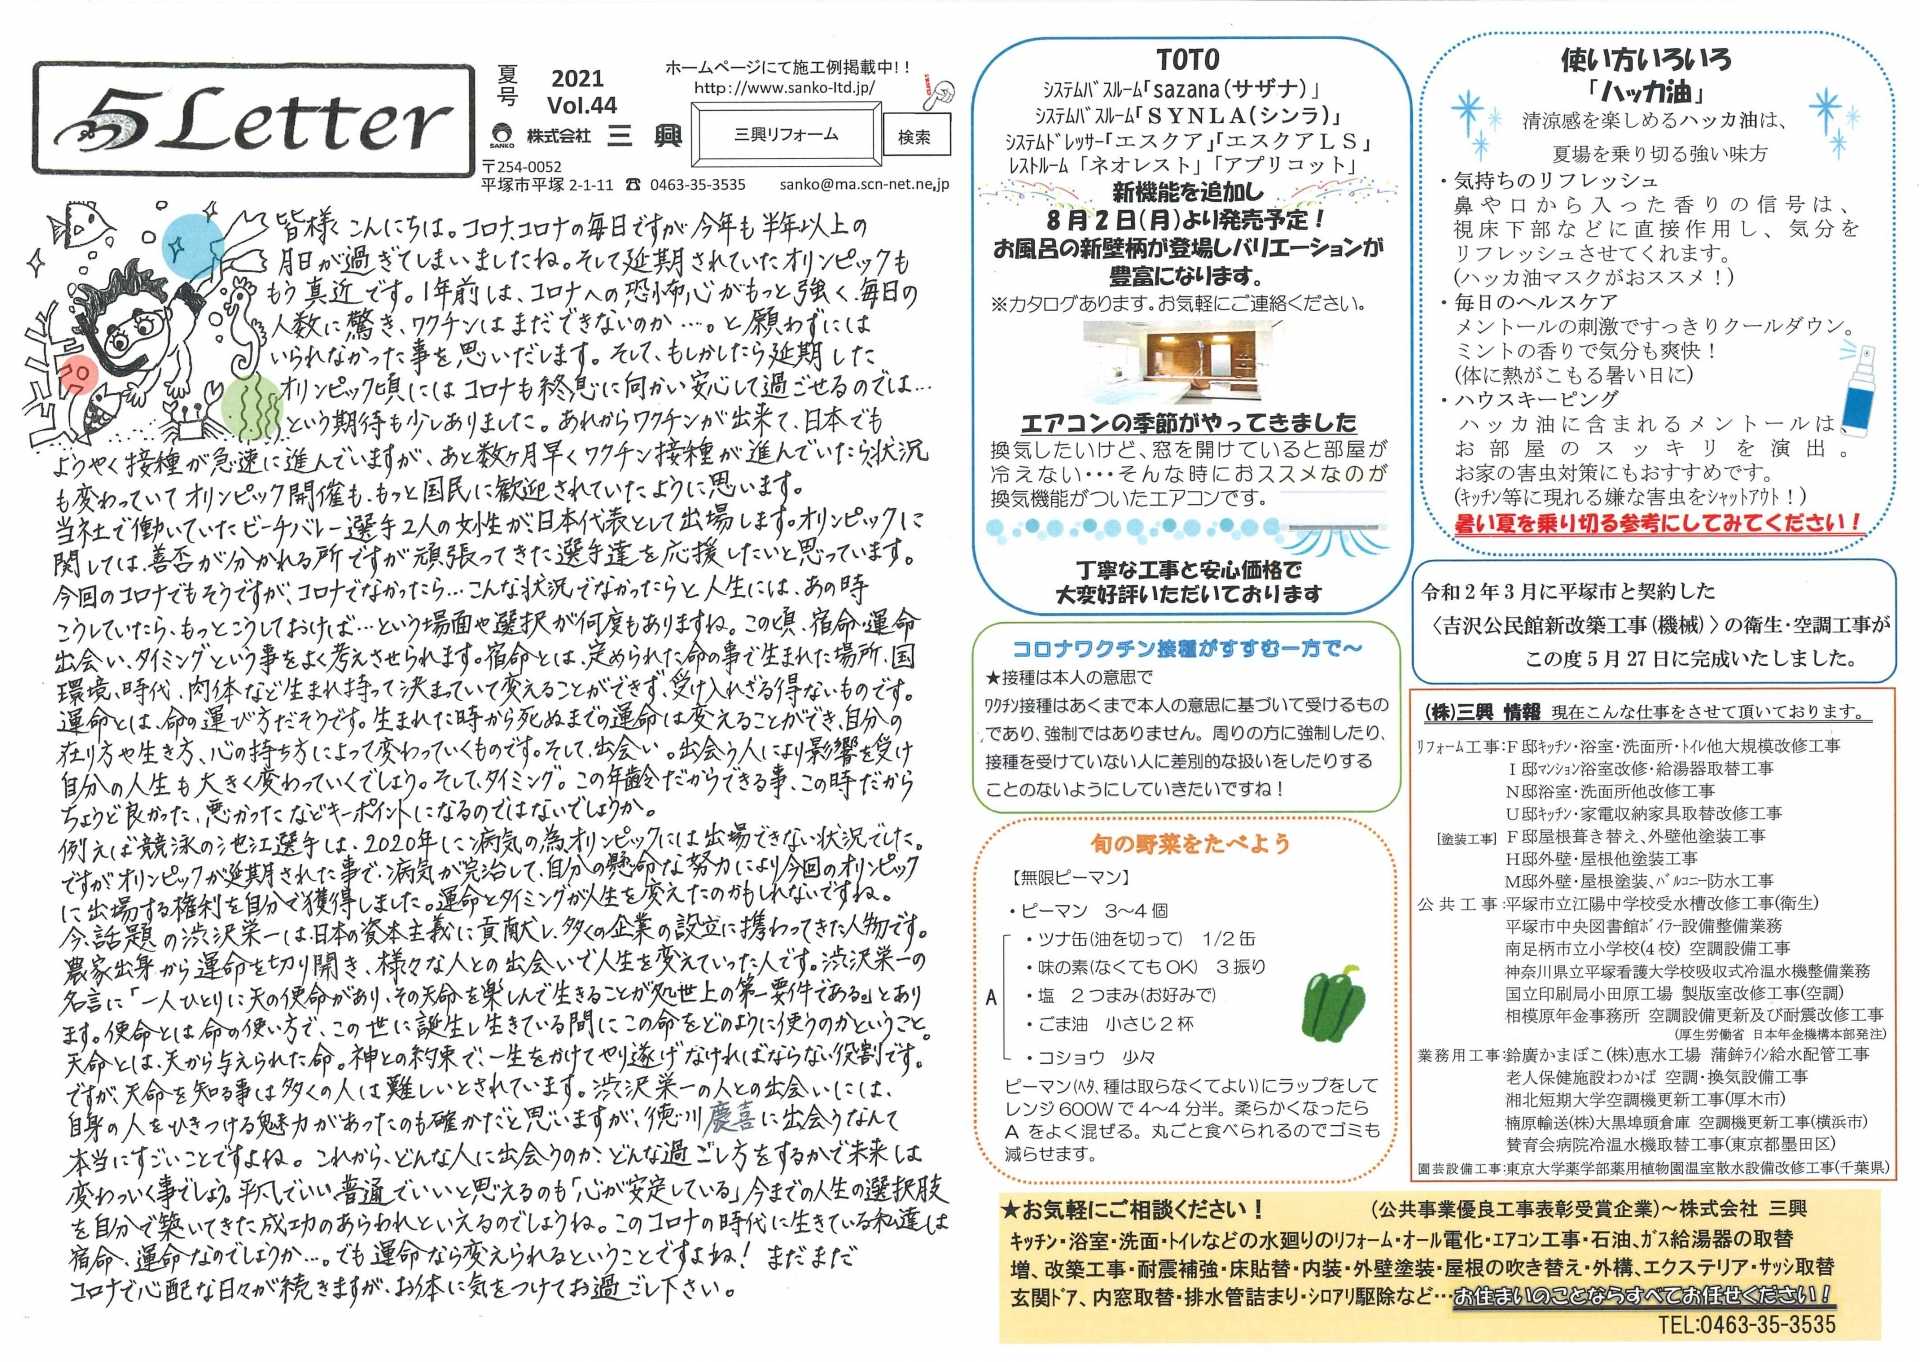 5 Letter
夏号
2021
Vol.44
ホームページにて施工例掲載中!!
http://www.sanko-ltd.jp/
SANKO
株式会社 三興
三興リフォーム
検索
〒254-0052
平塚市平塚 2-1-11 ☎ 0463-35-3535 sanko@ma.scn-net.ne.jp
皆様こんにちは。コロナ、コロナの毎日ですが今年も半年以上の
月日が過ぎてしまいましたね。そして延期されていたオリンピックも
もう真近です。1年前は、コロナへの恐怖心がもっと強く、毎日の
人数に驚き、ワクチンはまだできないのか…。と願わずには
いられなかった事を思いだします。そして、もしかしたら延期した
オリンピック頃にはコロナも終息に向かい安心して過ごせるのでは…
という期待も少しありました。あれからワクチンが出来て、日本でも
ようやく接種が急速に進んでいますが、あと数ヶ月早くワクチン接種が進んでいたら状況
も変わっていてオリンピック開催も、もっと国民に歓迎されていたように思います。
当社で働いていたビーチバレー選手2人の女性が日本代表として出場します。オリンピックに
関しては、善否が分かれる所ですが頑張ってきた選手達を応援したいと思っています。
今回のコロナでもそうですが、コロナでなかったら…こんな状況でなかったらと人生には、あの時
こうしていたら、もっとこうしておけば…という場面や選択が何度もありますね。この頃、宿命・運命
出会い、タイミングという事をよく考えさせられます。宿命とは、定められた命の事で生まれた場所、国
環境、時代、肉体など生まれ持って決まっていて変えることができず、受け入れざる得ないものです。
運命とは、命の運び方だそうです。生まれた時から死ぬまでの運命は変えることができ、自分の
在り方や生き方、心の持ち方によって変わっていくものです。そして、出会い。出会う人により影響を受け
自分の人生も大きく変わっていくでしょう。そして、タイミング。この年齢だからできる事、この時だから
ちょうど良かった、悪かったなどキーポイントになるのではないでしょうか。
例えば競泳の池江選手は、2020年に病気の為オリンピックには出場できない状況でした。
ですがオリンピックが延期された事で、病気が完治して、自分の懸命な努力により今回のオリンピック
に出場する権利を自分で獲得しました。運命とタイミングが人生を変えたのかもしれないですね。
今、話題の渋沢栄一は、日本の資本主義に貢献し、多くの企業の設立に携わってきた人物です。
農家出身から運命を切り開き、様々な人との出会いで人生を変えていった人です。渋沢栄一の
名言に「一人ひとりに天の使命があり、その天命を楽しんで生きることが処世上の第一要件である。」とあり
ます。使命とは命の使い方で、この世に誕生し生きている間にこの命をどのように使うのかということ。
天命とは、天から与えられた命。神との約束で、一生をかけてやり遂げなければならない役割です。
ですが、天命を知る事は多くの人は難しいとされています。渋沢栄一の人との出会いには、
自身の人をひきつける魅力があったのも確かだと思いますが、徳川慶喜に出会うなんて
本当にすごいことですよね。これから、どんな人に出会うのか、どんな過ごし方をするかで未来は
変わっいく事でしょう。平凡でいい、普通でいいと思えるのも「心が安定している」今までの人生の選択肢
を自分で築いてきた成功のあらわれといえるのでしょうね。このコロナの時代に生きている私達は
宿命・運命なのでしょうか…。でも運命なら変えられるということですよね! まだまだ
コロナで心配な日々が続きますが、お体に気をつけてお過ごし下さい。
TOTO
システムバスルーム「sazana(サザナ)」
システムバスルーム「SYNLA(シンラ)」
システムドレッサー「エスクア」「エスクアLS」
レストルーム「ネオレスト」「アプリコット」
新機能を追加し
8月2日(月)より発売予定!
お風呂の新壁柄が登場しバリエーションが
豊富になります。
※カタログあります。お気軽にご連絡ください。
エアコンの季節がやってきました
換気したいけど、窓を開けていると部屋が
冷えない・・・そんな時におススメなのが
換気機能がついたエアコンです。
丁寧な工事と安心価格で
大変好評いただいております
コロナワクチン接種がすすむ一方で～
★接種は本人の意思で
ワクチン接種はあくまで本人の意思に基づいて受けるもの
であり、強制ではありません。周りの方に強制したり、
接種を受けていない人に差別的な扱いをしたりする
ことのないようにしていきたいですね!
旬の野菜をたべよう
【無限ピーマン】
・ピーマン 3～4個
A
・ツナ缶(油を切って) 1/2缶
・味の素(なくてもOK) 3振り
・塩 2つまみ(お好みで)
・ごま油 小さじ2杯
・コショウ 少々
ピーマン(ヘタ、種は取らなくてよい)にラップをして
レンジ600Wで4～4分半。柔らかくなったら
Aをよく混ぜる。丸ごと食べられるのでゴミも
減らせます。
使い方いろいろ
「ハッカ油」
清涼感を楽しめるハッカ油は、
夏場を乗り切る強い味方
・気持ちのリフレッシュ
鼻や口から入った香りの信号は、
視床下部などに直接作用し、気分を
リフレッシュさせてくれます。
(ハッカ油マスクがおススメ!)
・毎日のヘルスケア
メントールの刺激ですっきりクールダウン。
ミントの香りで気分も爽快!
(体に熱がこもる暑い日に)
・ハウスキーピング
ハッカ油に含まれるメントールは、
お部屋のスッキリを演出。
お家の害虫対策にもおすすめです。
(キッチン等に現れる嫌な害虫をシャットアウト!)
暑い夏を乗り切る参考にしてみてください!
令和2年3月に平塚市と契約した
〈吉沢公民館新改築工事(機械)〉の衛生・空調工事が
この度5月27日に完成いたしました。
(株)三興 情報 現在こんな仕事をさせて頂いております。
リフォーム工事:F邸キッチン・浴室・洗面所・トイレ他大規模改修工事
I邸マンション浴室改修・給湯器取替工事
N邸浴室・洗面所他改修工事
U邸キッチン・家電収納家具取替改修工事
[塗装工事] F邸屋根葺き替え、外壁他塗装工事
H邸外壁・屋根他塗装工事
M邸外壁・屋根塗装、バルコニー防水工事
公共工事:平塚市立江陽中学校受水槽改修工事(衛生)
平塚市中央図書館ボイラー設備整備業務
南足柄市立小学校(4校) 空調設備工事
神奈川県立平塚看護大学校吸収式冷温水機整備業務
国立印刷局小田原工場 製版室改修工事(空調)
相模原年金事務所 空調設備更新及び耐震改修工事
(厚生労働省 日本年金機構本部発注)
業務用工事:鈴廣かまぼこ(株)恵水工場 蒲鉾ライン給水配管工事
老人保健施設わかば 空調・換気設備工事
湘北短期大学空調機更新工事(厚木市)
楠原輸送(株)大黒埠頭倉庫 空調機更新工事(横浜市)
賛育会病院冷温水機取替工事(東京都墨田区)
園芸設備工事:東京大学薬学部薬用植物園温室散水設備改修工事(千葉県)
★お気軽にご相談ください! (公共事業優良工事表彰受賞企業)～株式会社 三興
キッチン・浴室・洗面・トイレなどの水廻りのリフォーム・オール電化・エアコン工事・石油、ガス給湯器の取替
増、改築工事・耐震補強・床貼替・内装・外壁塗装・屋根の吹き替え・外構、エクステリア・サッシ取替
玄関ドア、内窓取替・排水管詰まり・シロアリ駆除など…お住まいのことならすべてお任せください!
TEL:0463-35-3535